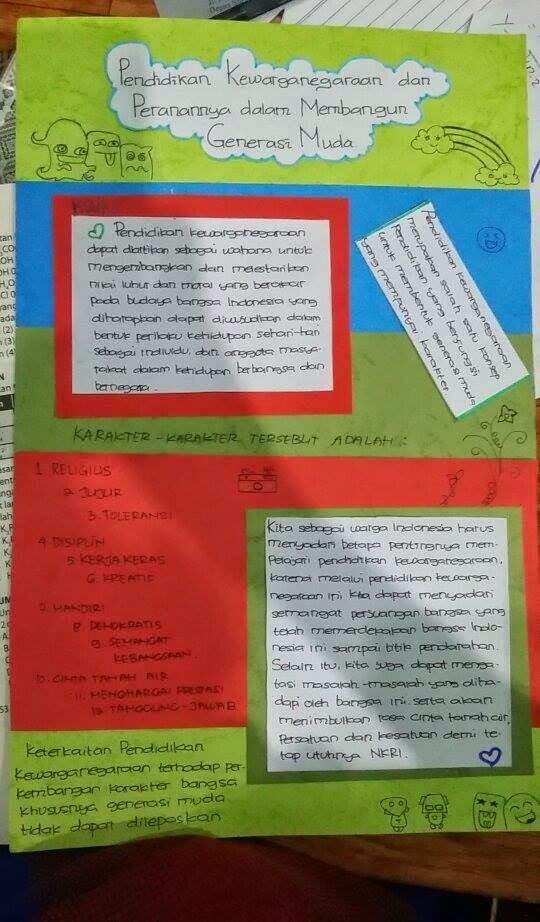 Pendidikan Kewarganegaraan dan
Peranannya dalam Membangun
Generasi Muda
Pendidikan kewarganegaraan
dapat diartikan sebagai wahana untuk
mengembangkan dan melestarikan
nilai luhur dan moral yang berakar
pada budaya bangsa Indonesia yang
diharapkan dapat diwujudkan dalam
bentuk perilaku kehidupan sehari-hari
sebagai individu, dan anggota masya-
rakat dalam kehidupan berbangsa dan
bernegara.
Pendidikan kewarganegaraan
merupakan salah satu konsep
Pendidikan yang berfungsi
untuk membentuk generasi muda
yang mempunyai karakter
KARAKTER-KARAKTER TERSEBUT ADALAH :
1. RELIGIUS
2. JUJUR
3. TOLERANSI
4. DISIPLIN
5. KERJA KERAS
6. KREATIF
7. MANDIRI
8. DEMOKRATIS
9. SEMANGAT
KEBANGSAAN
10. CINTA TANAH AIR
11. MENGHARGAI PRESTASI
12. TANGGUNG-JAWAB
Kita sebagai warga Indonesia harus
menyadari betapa pentingnya mem-
pelajari pendidikan kewarganegaraan,
karena melalui pendidikan kewarga-
negaraan ini kita dapat menyadari
semangat perjuangan bangsa yang
telah memerdekakan bangsa Indo-
nesia ini sampai titik pendarahan.
Selain itu, kita juga dapat menga-
tasi masalah-masalah yang diha-
dapi oleh bangsa ini. serta akan
menimbulkan rasa cinta tanah air,
Persatuan dan kesatuan demi te-
tap utuhnya NKRI.
Keterkaitan Pendidikan
Kewarganegaraan terhadap per-
kembangan karakter bangsa
khususnya generasi muda
tidak dapat dilepaskan